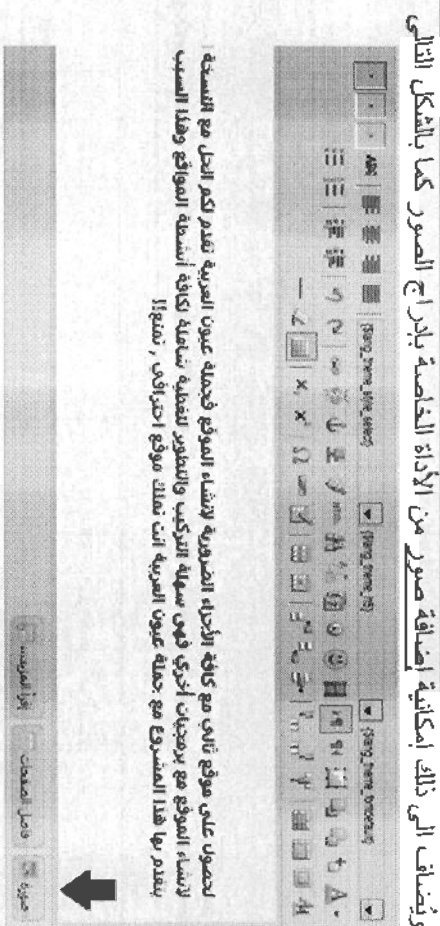 ويضاف الى ذلك إمكانية إضافة صور من الأداة الخاصة بإدراج الصور كما بالشكل التالى
{$lang_theme_style_select} {$lang_theme_h5} {$lang_theme_fontdefault}
ABC
لحصول على موقع تألي مع كافة الأجزاء الضرورية لإنشاء الموقع فجملة عيون العربية تقدم لكم الحل مع النسخة
لإنشاء الموقع مع برمجيات أخري فهي سهلة التركيب والتطوير لتغطية شاملة لكافة أنشطة المواقع وهذا السبب
يتقدم بها هذا المشروع مع جملة عيون العربية انت تملك موقع احترافي , تمتع!!
صورة
فاصل الصفحات
إقرأ المزيد...